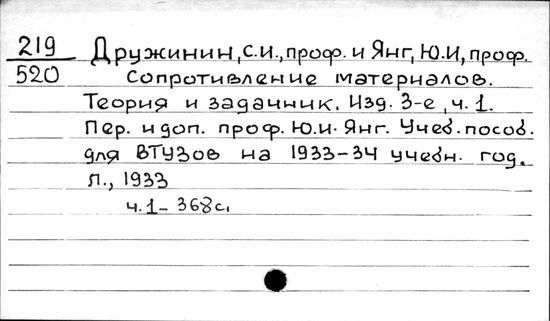 219 Дружинин, С.И., проф. и Янг, Ю.И, проф.
520 Сопротивление материалов.
Теория и задачник. Изд. 3-е, ч. 1.
Пер. и доп. проф. Ю.И. Янг. Учеб. пособ.
для ВТУЗов на 1933-34 учебн. год.
Л., 1933
ч.1- 368 с.